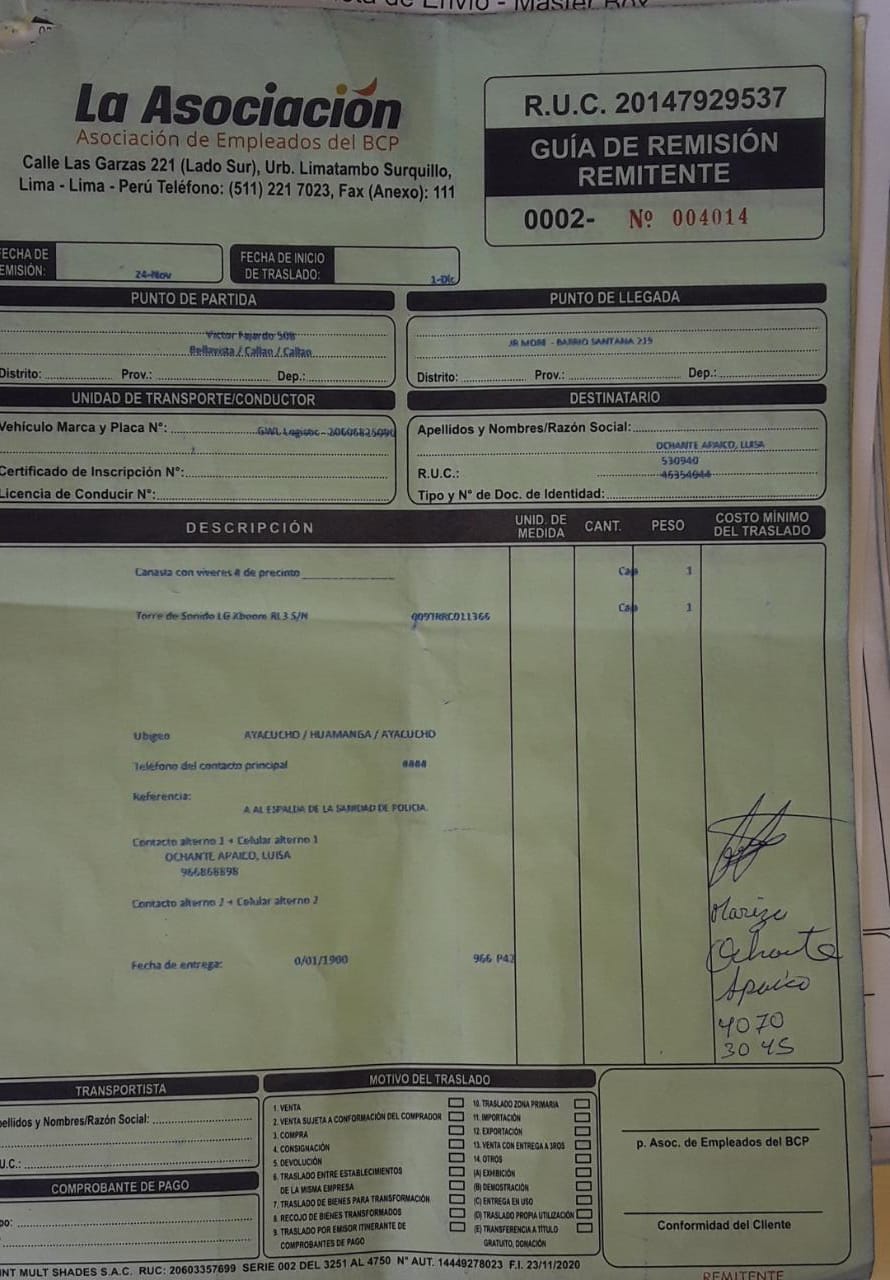 de Envío - Master Box
La Asociación
Asociación de Empleados del BCP
Calle Las Garzas 221 (Lado Sur), Urb. Limatambo Surquillo,
Lima - Lima - Perú Teléfono: (511) 221 7023, Fax (Anexo): 111
R.U.C. 20147929537
GUÍA DE REMISIÓN
REMITENTE
0002- Nº 004014
FECHA DE
EMISIÓN:
24-Nov
FECHA DE INICIO
DE TRASLADO:
1-Dic
PUNTO DE PARTIDA
Victor Fajardo 508
Bellavista / Callao / Callao
Distrito: Prov.: Dep.:
PUNTO DE LLEGADA
JR MORE - BARRIO SANTANA 219
Distrito: Prov.: Dep.:
UNIDAD DE TRANSPORTE/CONDUCTOR
Vehículo Marca y Placa N°: GWL Logistic - 20606825090
Certificado de Inscripción N°:
Licencia de Conducir N°:
DESTINATARIO
Apellidos y Nombres/Razón Social:
OCHANTE APAICO, LUISA
530940
R.U.C.: 46354044
Tipo y N° de Doc. de Identidad:
DESCRIPCIÓN UNID. DE MEDIDA CANT. PESO COSTO MÍNIMO DEL TRASLADO
Canasta con víveres # de precinto Caja 1
Torre de Sonido LG Xboom RL3 S/N 009TRRC011366 Caja 1
Ubigeo AYACUCHO / HUAMANGA / AYACUCHO
Teléfono del contacto principal ####
Referencia:
A AL ESPALDA DE LA SANIDAD DE POLICIA.
Contacto alterno 1 + Celular alterno 1
OCHANTE APAICO, LUISA
966868898
Contacto alterno 2 + Celular alterno 2
Fecha de entrega: 0/01/1900 966 P42
Marize
Ochante
Apaico
4070
3045
TRANSPORTISTA
pellidos y Nombres/Razón Social:
U.C.:
COMPROBANTE DE PAGO
po:
MOTIVO DEL TRASLADO
1. VENTA
2. VENTA SUJETA A CONFORMACIÓN DEL COMPRADOR
3. COMPRA
4. CONSIGNACIÓN
5. DEVOLUCIÓN
6. TRASLADO ENTRE ESTABLECIMIENTOS
DE LA MISMA EMPRESA
7. TRASLADO DE BIENES PARA TRANSFORMACIÓN
8. RECOJO DE BIENES TRANSFORMADOS
9. TRASLADO POR EMISOR ITINERANTE DE
COMPROBANTES DE PAGO
10. TRASLADO ZONA PRIMARIA
11. IMPORTACIÓN
12. EXPORTACIÓN
13. VENTA CON ENTREGA A 3ROS
14. OTROS
(A) EXHIBICIÓN
(B) DEMOSTRACIÓN
(C) ENTREGA EN USO
(D) TRASLADO PROPIA UTILIZACIÓN
(E) TRANSFERENCIA A TÍTULO
GRATUITO, DONACIÓN
p. Asoc. de Empleados del BCP
Conformidad del Cliente
INT MULT SHADES S.A.C. RUC: 20603357699 SERIE 002 DEL 3251 AL 4750 N° AUT. 14449278023 F.I. 23/11/2020
REMITENTE